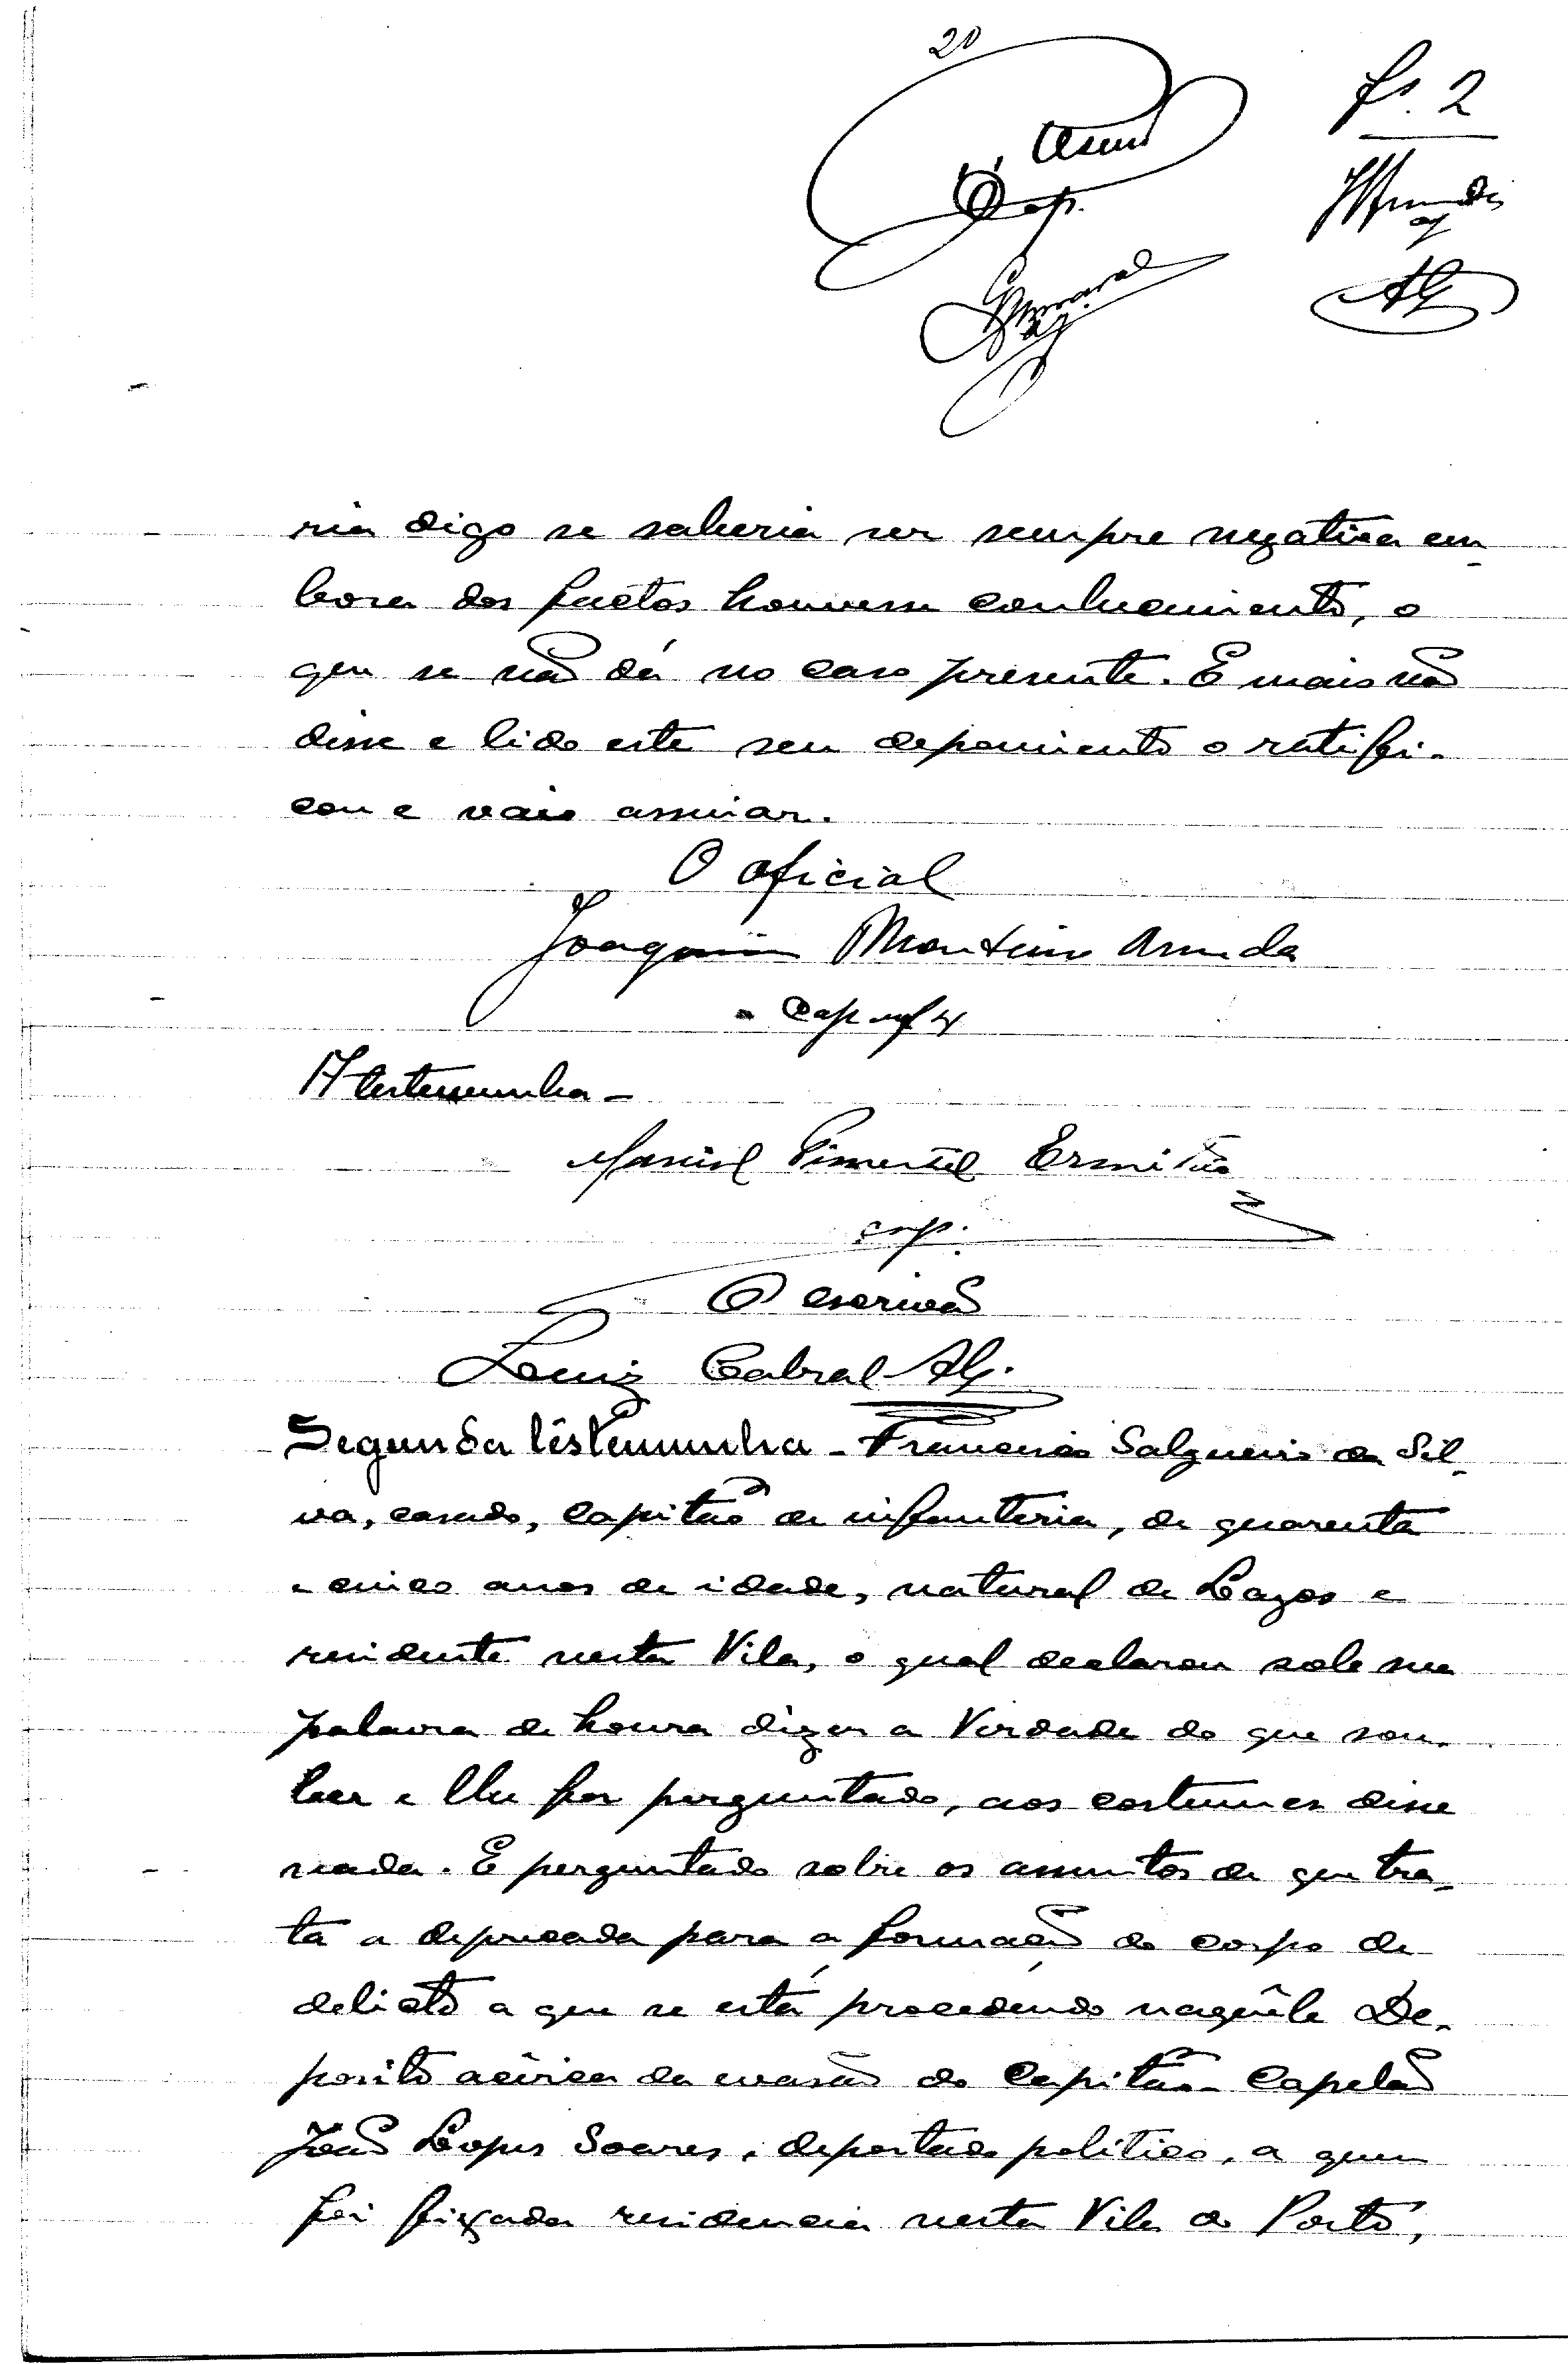 20
fs. 2
Cap.
Alf
ria digo se saberia ser sempre negativa em-
bora dos factos houvesse conhecimento, o
que se não dá no caso presente. E mais não
disse e lido este seu depoimento o ratifi-
cou e vai assinar.
O oficial
Joaquim Monteiro Arruda
Cap inf 4
A testemunha -
Manuel Pimentel Ermitão
cap.
O escrivão
Luiz Cabral Alf.
Segunda testemunha - Francisco Salgueiro da Sil-
va, casado, capitão de infanteria, de quarenta
e cinco anos de idade, natural de Lagos e
residente nesta Vila, o qual declarou sob sua
palavra de honra dizer a Verdade do que sou-
ber e lhe for perguntado, aos costumes disse
nada. E perguntado sobre os assuntos de que tra-
ta a deprecada para a formação do corpo de
delicto a que se está procedendo naquêle De-
posito acêrca da evasão do Capitão Capelão
João Lopes Soares, deportado politico, a quem
foi fixada residencia nesta Vila do Porto,